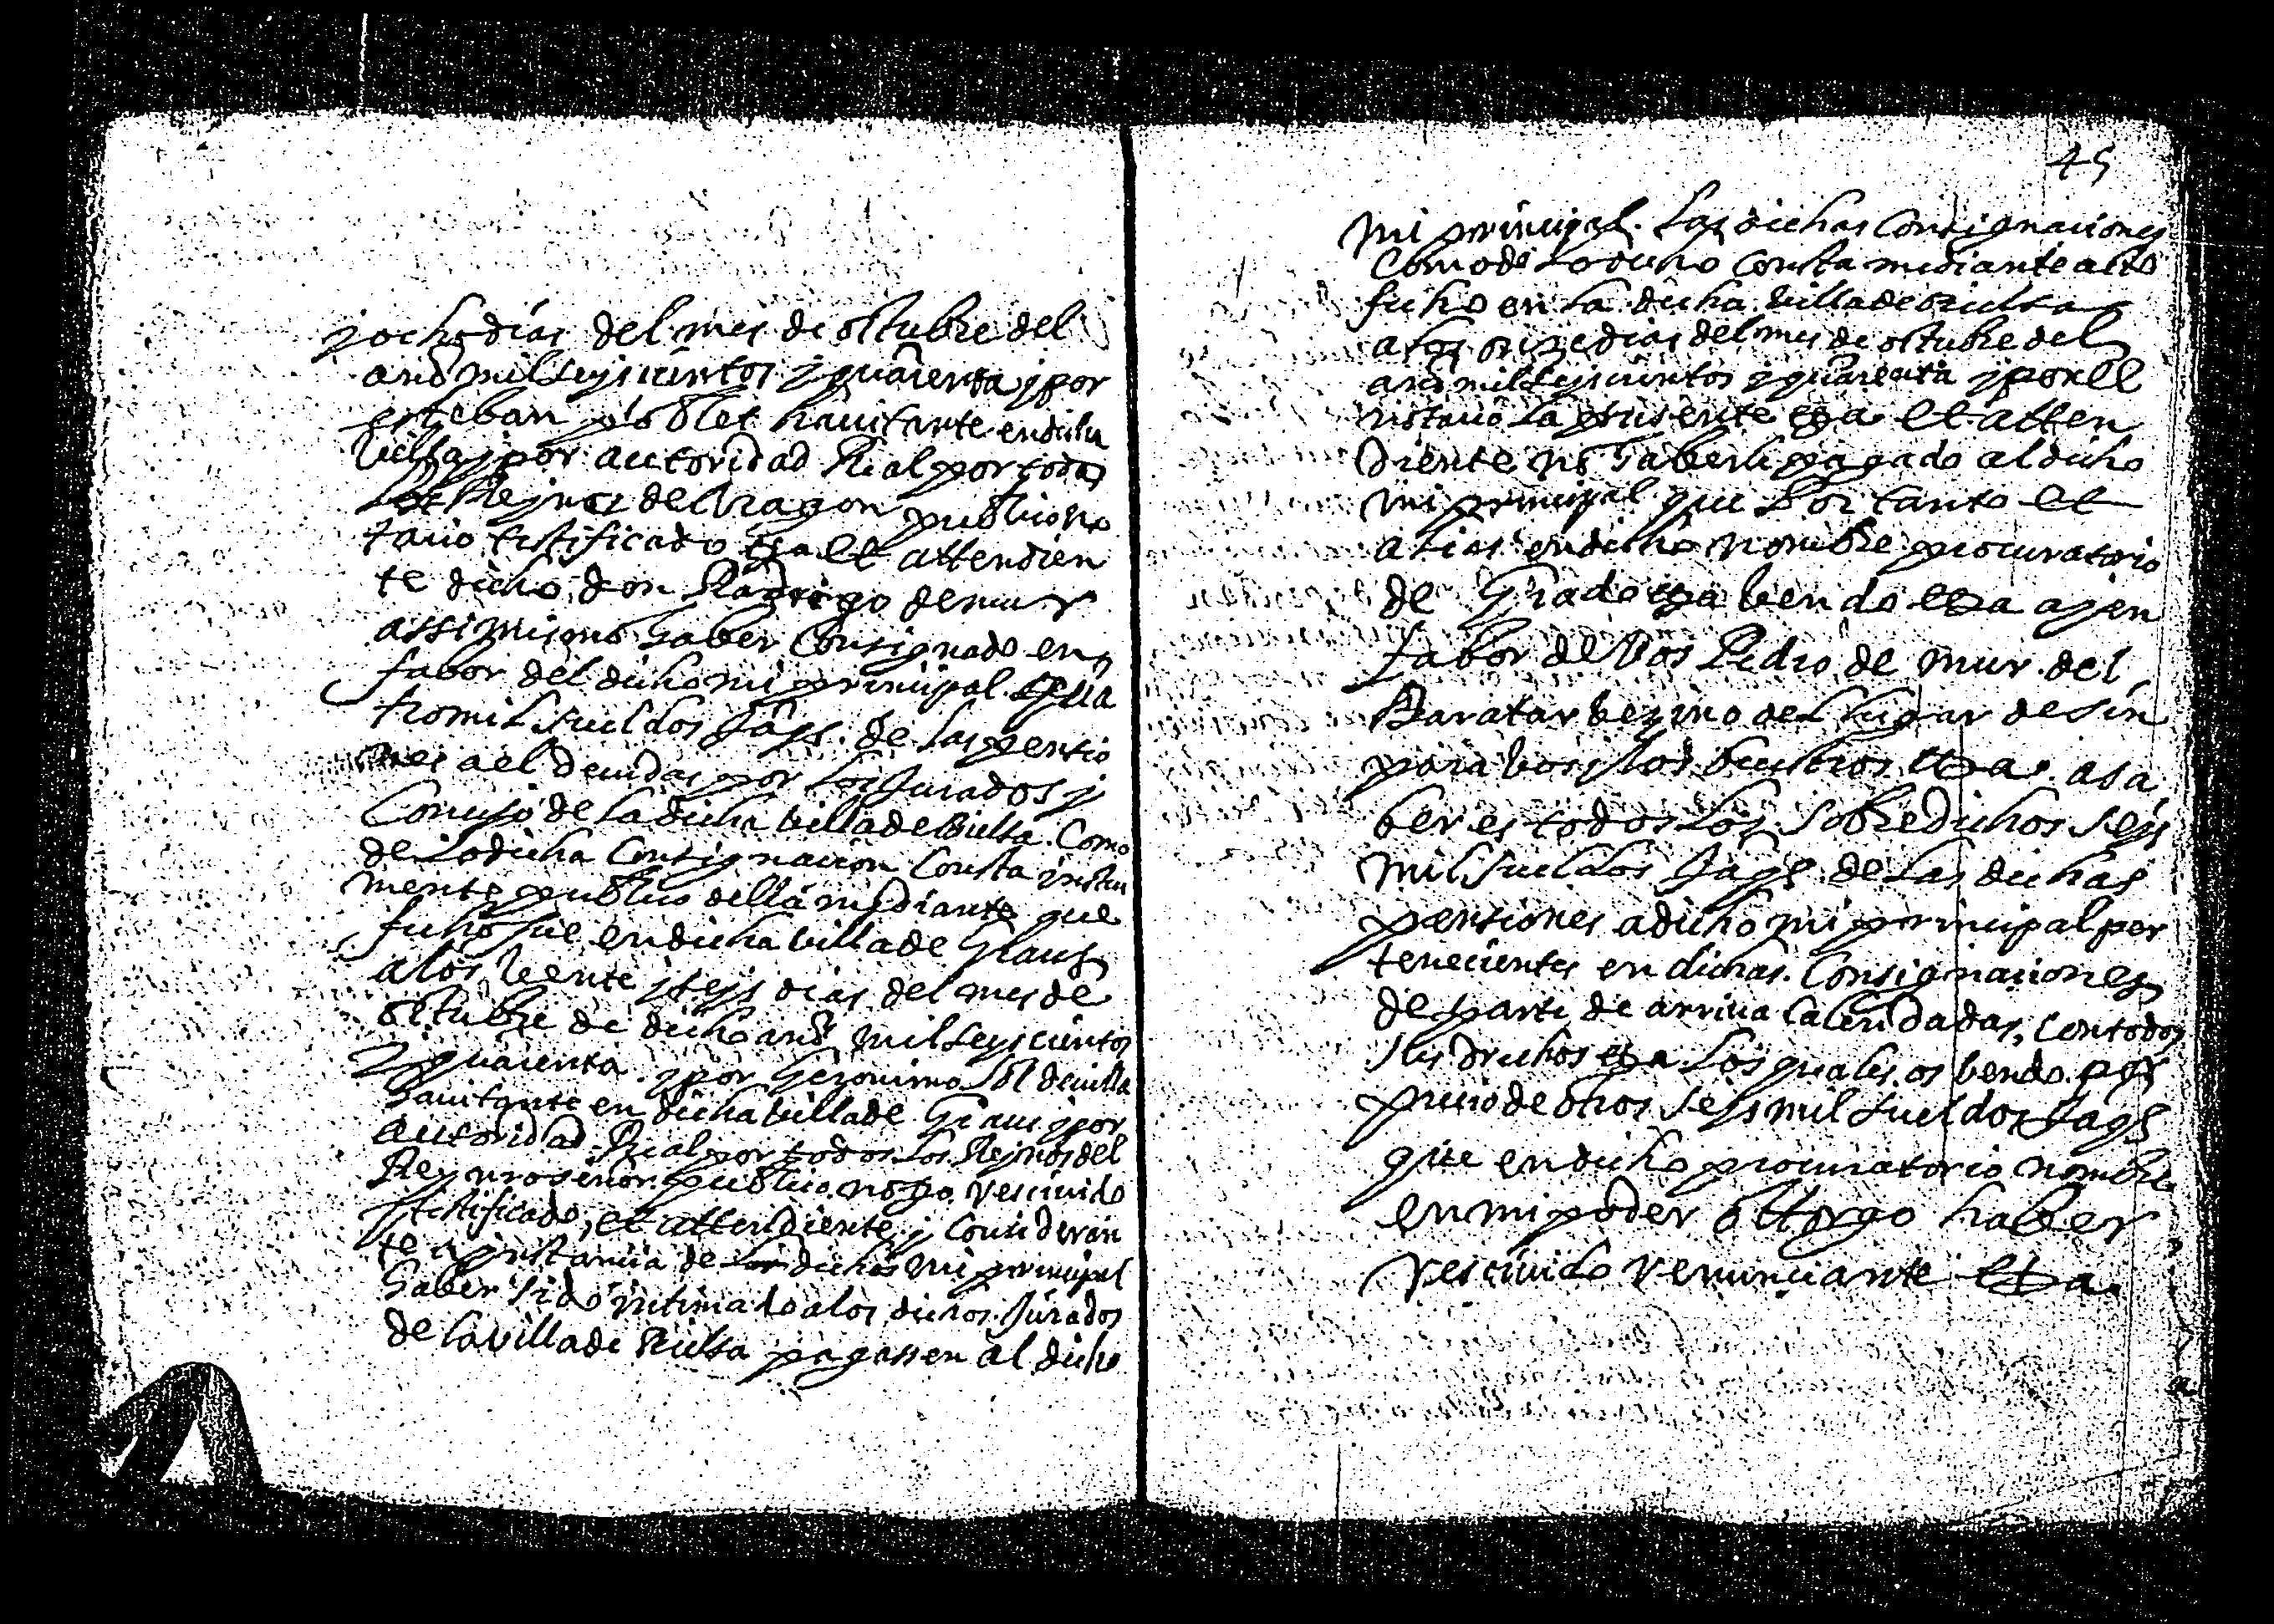 y ocho dias del mes de octubre del
año mil seyscientos y quarenta y por
esteban poblet hauitante en dicha
villa y por autoridad Real por todo
el Reyno de Aragon publico no
tario testificado etza et attendien
te dicho don Rodrigo de mur
assi mismo haber consignado en
fabor del dicho mi principal qua
tro mil sueldos Jaqs. de las pensio
nes a el deuidas por los Jurados y
Concejo de la dicha villa de Bielsa. Como
de lo dicha Consignacion Consta instru
mente publico della mediante que
fecho fue en dicha villa de Graus
a los veente y seys dias del mes de
octubre de dicho año mil seyscientos
y quarenta y por Geronimo Sol deuilla
hauitante en dicha villa de Graus y por
autoridad Real por todos los Reynos del
Rey nro señor publico noto. resciuido
y testificado, et attendiente y consideran
te a instancia de dicho mi principal
haber sido intimado a los dichos Jurados
de la villa de Bielsa pagassen al dicho
45
mi principal. Las dichas Consignaciones
Como de lo dicho consta mediante acto
fecho en la dicha villa de Bielsa
a los onze dias del mes de octubre del
año mil seyscientos y quarenta y por el
notario la presente etza et atten
diente no haberle pagado al dicho
mi principal que Por tanto et
alias en dicho nombre procuratorio
de Grado etza bendo etza a y en
fabor de Vos Pedro de mur del
Baratar bezino del lugar de sin
para bos y los buestros etza. a sa
ber es todos los sobredichos seys
mil sueldos Jaqs. de las dichas
pensiones a dicho mi principal per
tenecientes en dichas. Consignaciones
de parte de arriua Calendadas, con todos
sus drechos etza los quales os bendo por
precio de otros seys mil sueldos Jaqs
que en dicho procuratorio nombre
en mi poder ottorgo haber
resciuido renunciante etza.